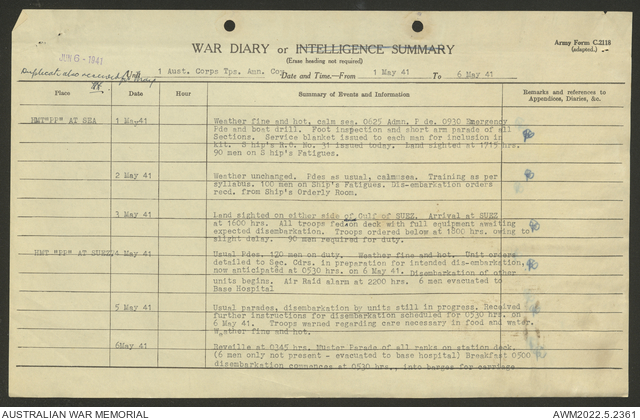 JUN 6 - 1941
WAR DIARY or INTELLIGENCE SUMMARY
(Erase heading not required)
Army Form C.2118
(adapted.)
Duplicate also received
Unit 1 Aust. Corps Tps. Amn. Coy
Date and Time—From 1 May 41 To 6 May 41
Place Date Hour Summary of Events and Information Remarks and references to Appendices, Diaries, &c.
HMT"PP" AT SEA 1 May41 Weather fine and hot, calm sea. 0625 Admn. P de. 0930 Emergency
Pds and boat drill. Foot inspection and short arm parade of all
Sections. Service blanket issued to each man for inclusion in
kit. S hip's R.O. No. 31 issued today. Land sighted at 1715 hrs.
90 men on S hip's Fatigues.
2 May 41 Weather unchanged. Pdes as usual, calm sea. Training as per
syllabus. 100 men on Ship's Fatigues. Dis-embarkation orders
recd. from Ship's Orderly Room.
3 May 41 Land sighted on either side of Gulf of SUEZ. Arrival at SUEZ
at 1600 hrs. All troops fed on deck with full equipment awaiting
expected disembarkation. Troops ordered below at 1800 hrs. owing to
slight delay. 90 men required for duty.
HMT "PP" AT SUEZ 4 May 41 Usual Pdes. 120 men on duty. Weather fine and hot. Unit orders
detailed to Sec. Cdrs. in preparation for intended dis-embarkation,
now anticipated at 0530 hrs. on 6 May 41. Disembarkation of other
units begins. Air Raid alarm at 2200 hrs. 6 men evacuated to
Base Hospital
5 May 41 Usual parades, disembarkation by units still in progress. Received
further instructions for disembarkation scheduled for 0530 hrs. on
6 May 41. Troops warned regarding care necesssary in food and water.
Weather fine and hot.
6May 41 Reveille at 0345 hrs. Muster Parade of all ranks on station deck.
(6 men only not present - evacuated to base hospital) Breakfast 0500
disembarkation commences at 0530 hrs., into barges for carriage
AUSTRALIAN WAR MEMORIAL
AWM2022.5.2361